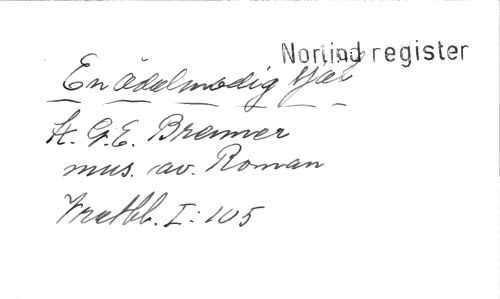 Norlind register
En ädelmodig själ
H. G. E. Brenner
mus. av. Roman
Vratbb. I: 105